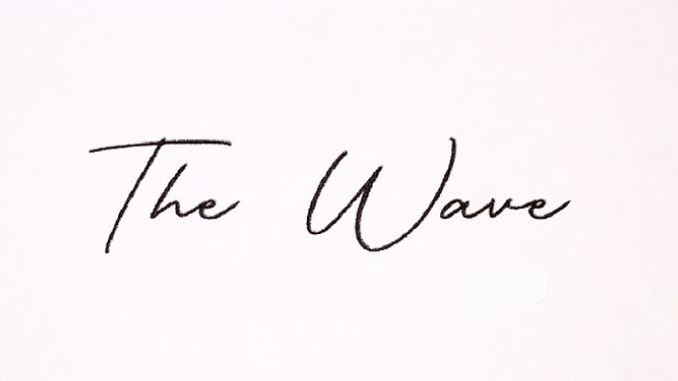 The Wave